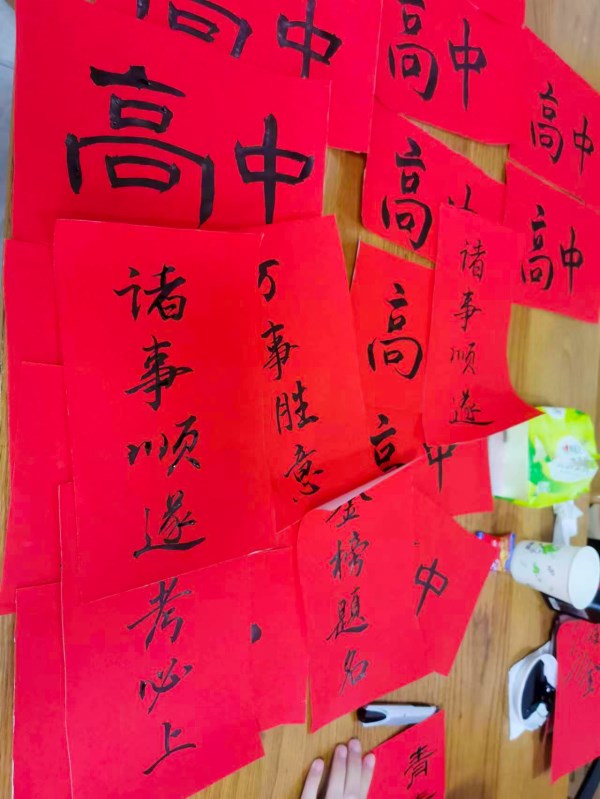 高中
高中
高中
高中
高
高中
诸事顺遂
事胜意
高
诸事顺遂
中
金榜题名
中
考必上
青